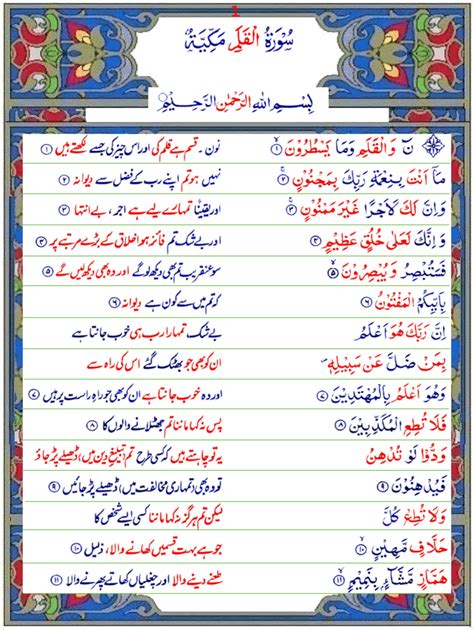 1
سُوْرَةُ الْقَلَمِ مَكِّيَّةٌ
بِسْمِ اللهِ الرَّحْمٰنِ الرَّحِيْمِ
نٓ وَالْقَلَمِ وَمَا يَسْطُرُوْنَ ۙ﴿۱﴾ نون۔ قسم ہے قلم کی اور اس چیز کی جسے لکھتے ہیں ﴿۱﴾
مَاۤ اَنْتَ بِنِعْمَةِ رَبِّكَ بِمَجْنُوْنٍ ۚ﴿۲﴾ نہیں ہو تم اپنے رب کے فضل سے دیوانہ ﴿۲﴾
وَاِنَّ لَكَ لَاَجْرًا غَيْرَ مَمْنُوْنٍ ۚ﴿۳﴾ اور یقیناً تمہارے لیے ہے اجر، بے انتہا ﴿۳﴾
وَاِنَّكَ لَعَلٰى خُلُقٍ عَظِيْمٍ ﴿۴﴾ اور بے شک تم فائز ہو اخلاق کے بڑے مرتبے پر ﴿۴﴾
فَسَتُبْصِرُ وَيُبْصِرُوْنَ ۙ﴿۵﴾ سو عنقریب تم بھی دیکھ لو گے اور وہ بھی دیکھ لیں گے ﴿۵﴾
بِاَيِّىكُمُ الْمَفْتُوْنُ ﴿۶﴾ کہ تم میں سے کون ہے دیوانہ ﴿۶﴾
اِنَّ رَبَّكَ هُوَ اَعْلَمُ بے شک تمہارا رب ہی خوب جانتا ہے
بِمَنْ ضَلَّ عَنْ سَبِيْلِهٖ ۪ ان کو بھی جو بھٹک گئے اس کی راہ سے
وَهُوَ اَعْلَمُ بِالْمُهْتَدِيْنَ ﴿۷﴾ اور وہ خوب جانتا ہے ان کو بھی جو راہِ راست پر ہیں ﴿۷﴾
فَلَا تُطِعِ الْمُكَذِّبِيْنَ ﴿۸﴾ پس نہ کہا ماننا تم جھٹلانے والوں کا ﴿۸﴾
وَدُّوْا لَوْ تُدْهِنُ یہ تو چاہتے ہیں کہ کسی طرح تم (تبلیغِ دین میں) ڈھیلے پڑ جاؤ
فَيُدْهِنُوْنَ ﴿۹﴾ تو وہ بھی (تمہاری مخالفت میں) ڈھیلے پڑ جائیں ﴿۹﴾
وَلَا تُطِعْ كُلَّ لیکن تم ہرگز نہ کہا ماننا کسی ایسے شخص کا
حَلَّافٍ مَّهِيْنٍ ۙ﴿۱۰﴾ جو ہے بہت قسمیں کھانے والا، ذلیل ﴿۱۰﴾
هَمَّازٍ مَّشَّآءٍ بِنَمِيْمٍ ۙ﴿۱۱﴾ طعنے دینے والا اور چغلیاں کھاتے پھرنے والا ﴿۱۱﴾